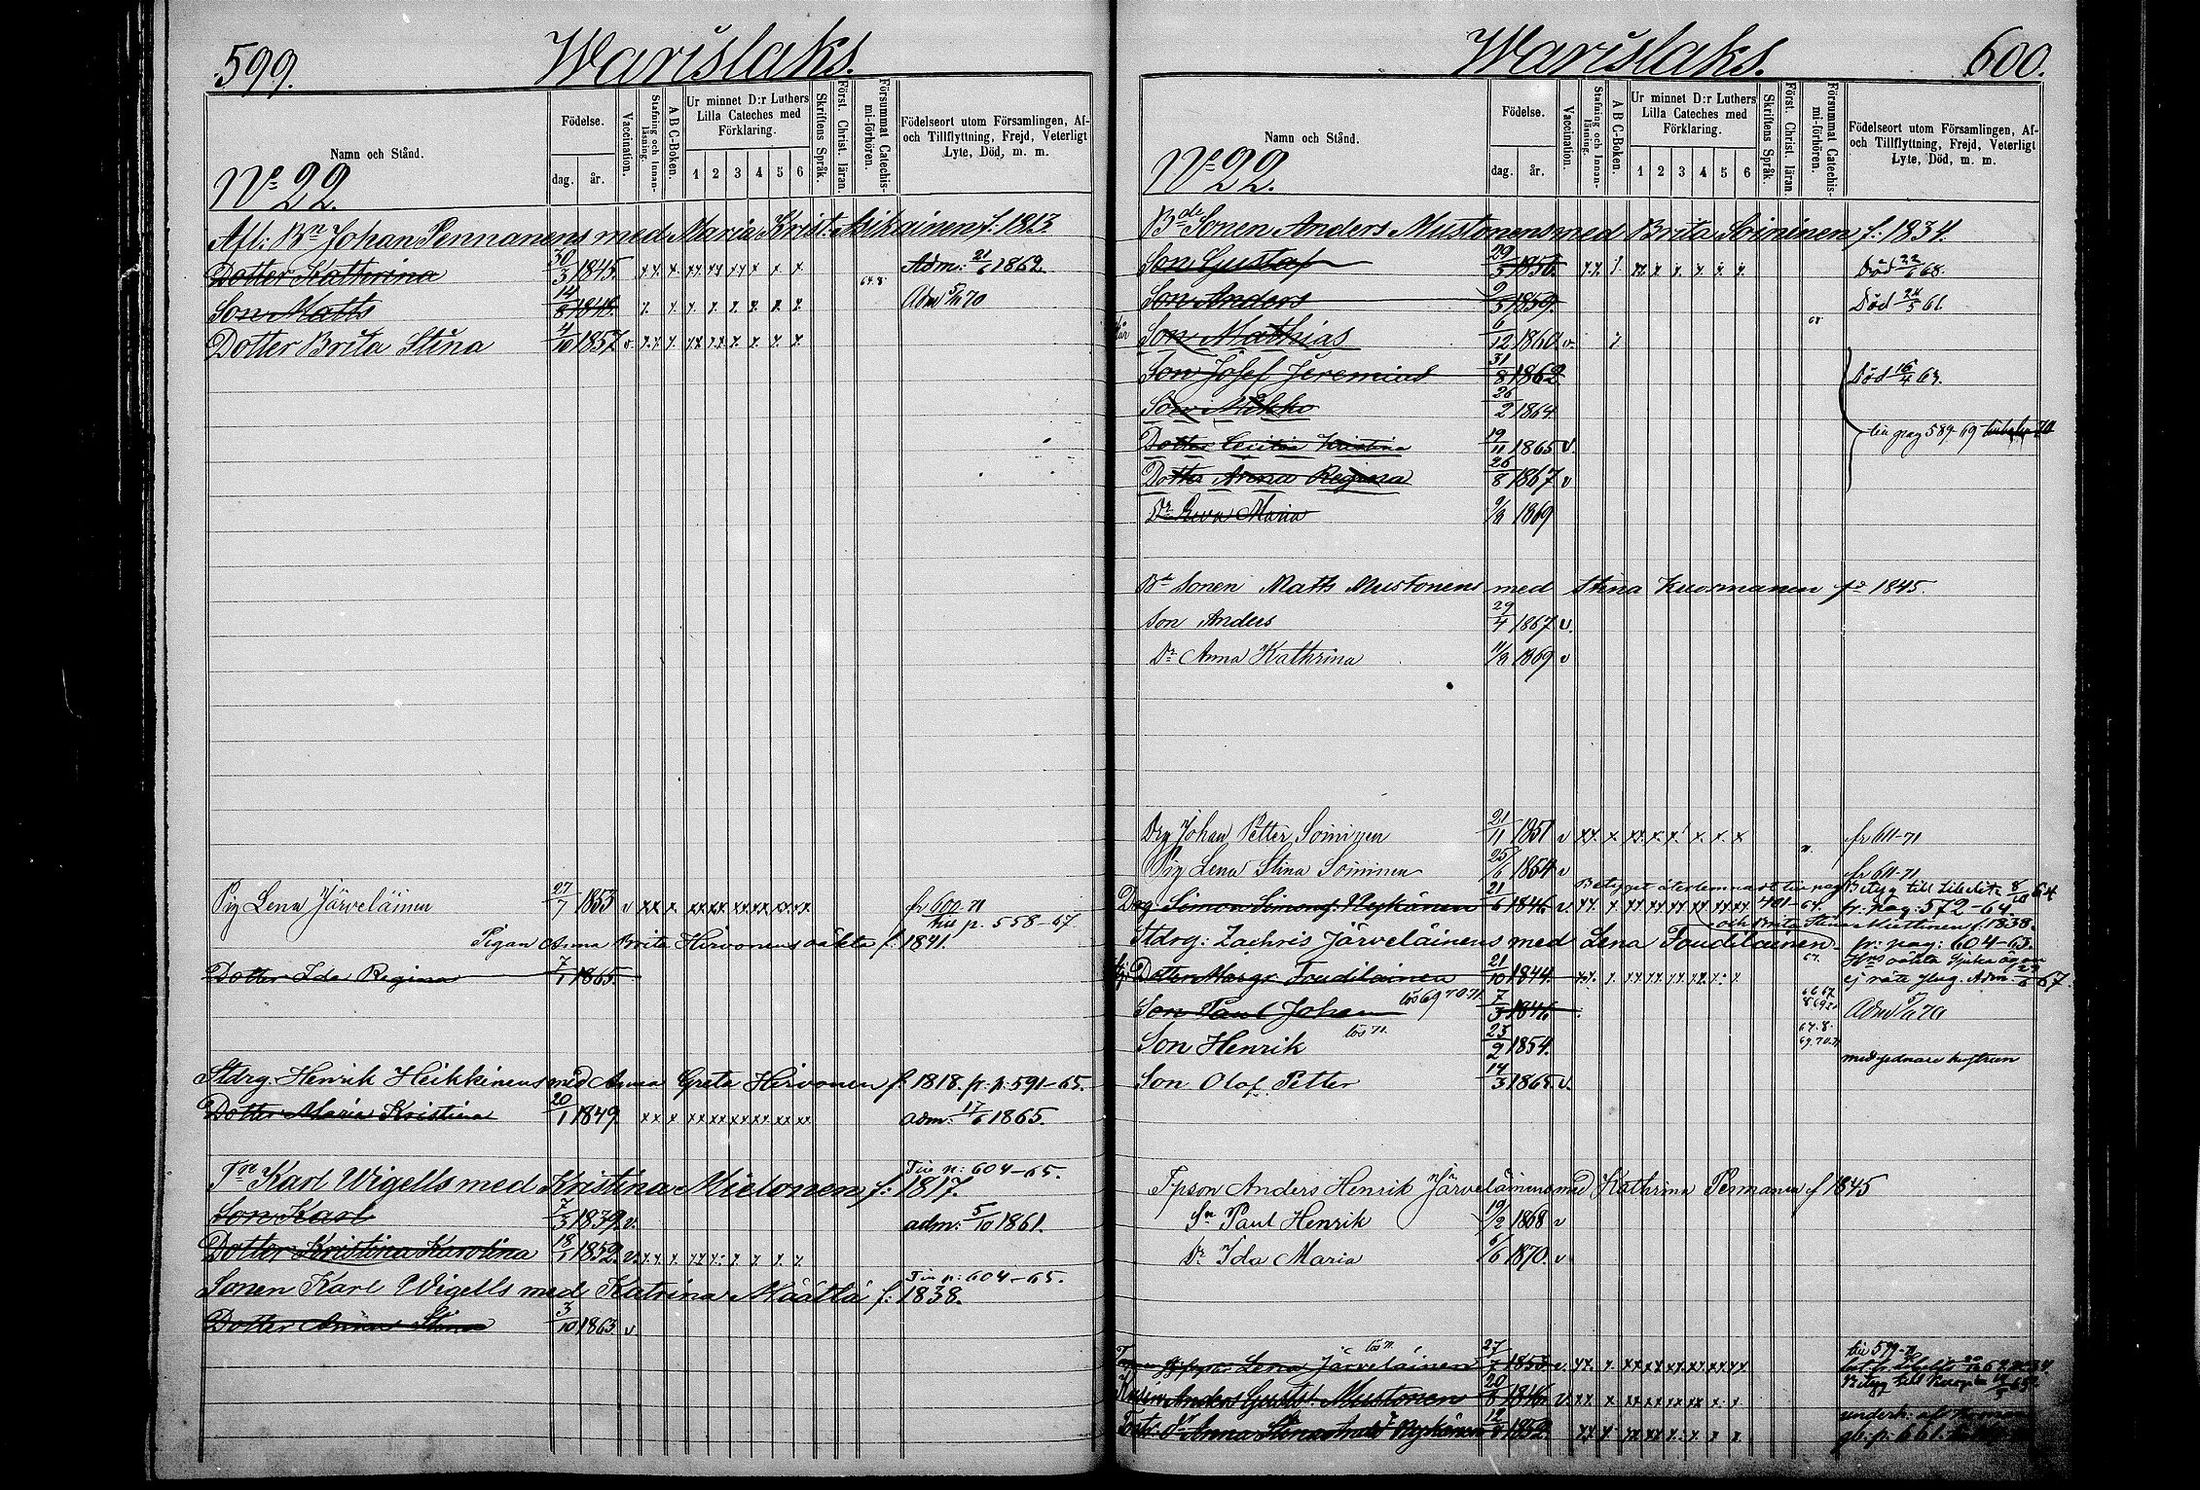 599.
Warislaks.
Namn och Stånd.
Födelse.
dag. år.
Vaccination.
Stafning och Innan-läsning.
A B C-Boken.
Ur minnet D:r Luthers Lilla Cateches med Förklaring.
1 2 3 4 5 6
Skriftens Språk.
Först. Christ. läran.
Försummat Catechis-mi-förhören.
Födelseort utom Församlingen, Af- och Tillflyttning, Frejd, Veterligt Lyte, Död, m. m.
No 22.
Afl: Bn Johan Pennanens med Maria Krist. Asikainen f: 1813
Dotter Kathrina 30/3 1845. Adm: 21/6 1862.
Son Matts 14/8 1848. Adm 5/11 70
Dotter Brita Stina 4/10 1857 v
Pig Lena Järveläinen 27/7 1853 v fr 600-71
Pigan Anna Brita Hirvonens oäkta f: 1841. til p. 558-67
Dotter Ida Regina 7/1 1865.
Stdrg. Henrik Heikkinens med Anna Greta Hirvonen f: 1818. fr. p: 591-65.
Dotter Maria Kristina 20/1 1849. adm: 17/6 1865.
Karl Wigells med Kristina Mielonen f: 1817. Till p: 604-65.
Son Karl 7/3 1839. v. adm: 5/10 1861.
Dotter Kristina Karolina 18/1 1852. v.
Sonen Karl Wigells med Katrina Määttä f: 1838. Till p: 604-65.
Dotter Anna Stina 3/10 1863 v
Warislaks.
600.
Namn och Stånd.
Födelse.
dag. år.
Vaccination.
Stafning och Innan-läsning.
A B C-Boken.
Ur minnet D:r Luthers Lilla Cateches med Förklaring.
1 2 3 4 5 6
Skriftens Språk.
Först. Christ. läran.
Försummat Catechis-mi-förhören.
Födelseort utom Församlingen, Af- och Tillflyttning, Frejd, Veterligt Lyte, Död, m. m.
No 22.
Bde Sonen Anders Mustonens med Brita Soininen f: 1834.
Son Gustaf 29/5 1856. Död 22/1 68.
Son Anders 9/5 1859. Död 24/5 61.
Son Mathias 6/12 1860 v.
Son Josef Jeremias 31/8 1862 Död 16/4 63.
Son Mikko 26/2 1864
Dotter Cecilia Kristina 19/11 1865 v. till pag 589-69
Dotter Anna Regina 26/8 1867 v
Dr Eva Maria 9/8 1869
Bde Sonen Matts Mustonens med Stina Kuosmanen f: 1845.
Son Anders 29/4 1867 v.
Dr Anna Kathrina 11/8 1869 v
Drg Johan Petter Soininen 21/11 1851 v fr 611-71
Pig Lena Stina Soininen 25/6 1854 v fr 611-71
Drg Simon Simonss. Nykänen 21/6 1846 v. fr. pag: 572-64.
Betyget återlemnadt till pag 401-64.
och Brita Stina Miettinen f. 1838.
Stdrg: Zachris Järveläinens med Lena Toudilainen. fr: pag: 604-63.
Dotter Margr. Toudilainen 21/10 1844.
Son Paul Johan lös 69 70.71 7/3 1846 Adm 5/11 70
Son Henrik lös 71. 23/2 1854.
Son Olof Petter 14/3 1865 v.
Anders Henrik Järveläinens med Kathrina Permanen f 1845
Sn Paul Henrik 19/2 1868 v
Dr Ida Maria 6/6 1870. v
Lena Järveläinen lös 71. 27/7 1853 v. till 599-71
Anders Gustafs. Mustonen 20/8 1846 v
Anna Stina Nykänen 1852. gb: p: 661.